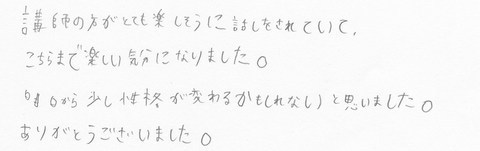 講師の方がとても楽しそうに話しをされていて、
こちらまで楽しい気分になりました。
明日から少し性格が変わるかもしれない)と思いました。
ありがとうございました。